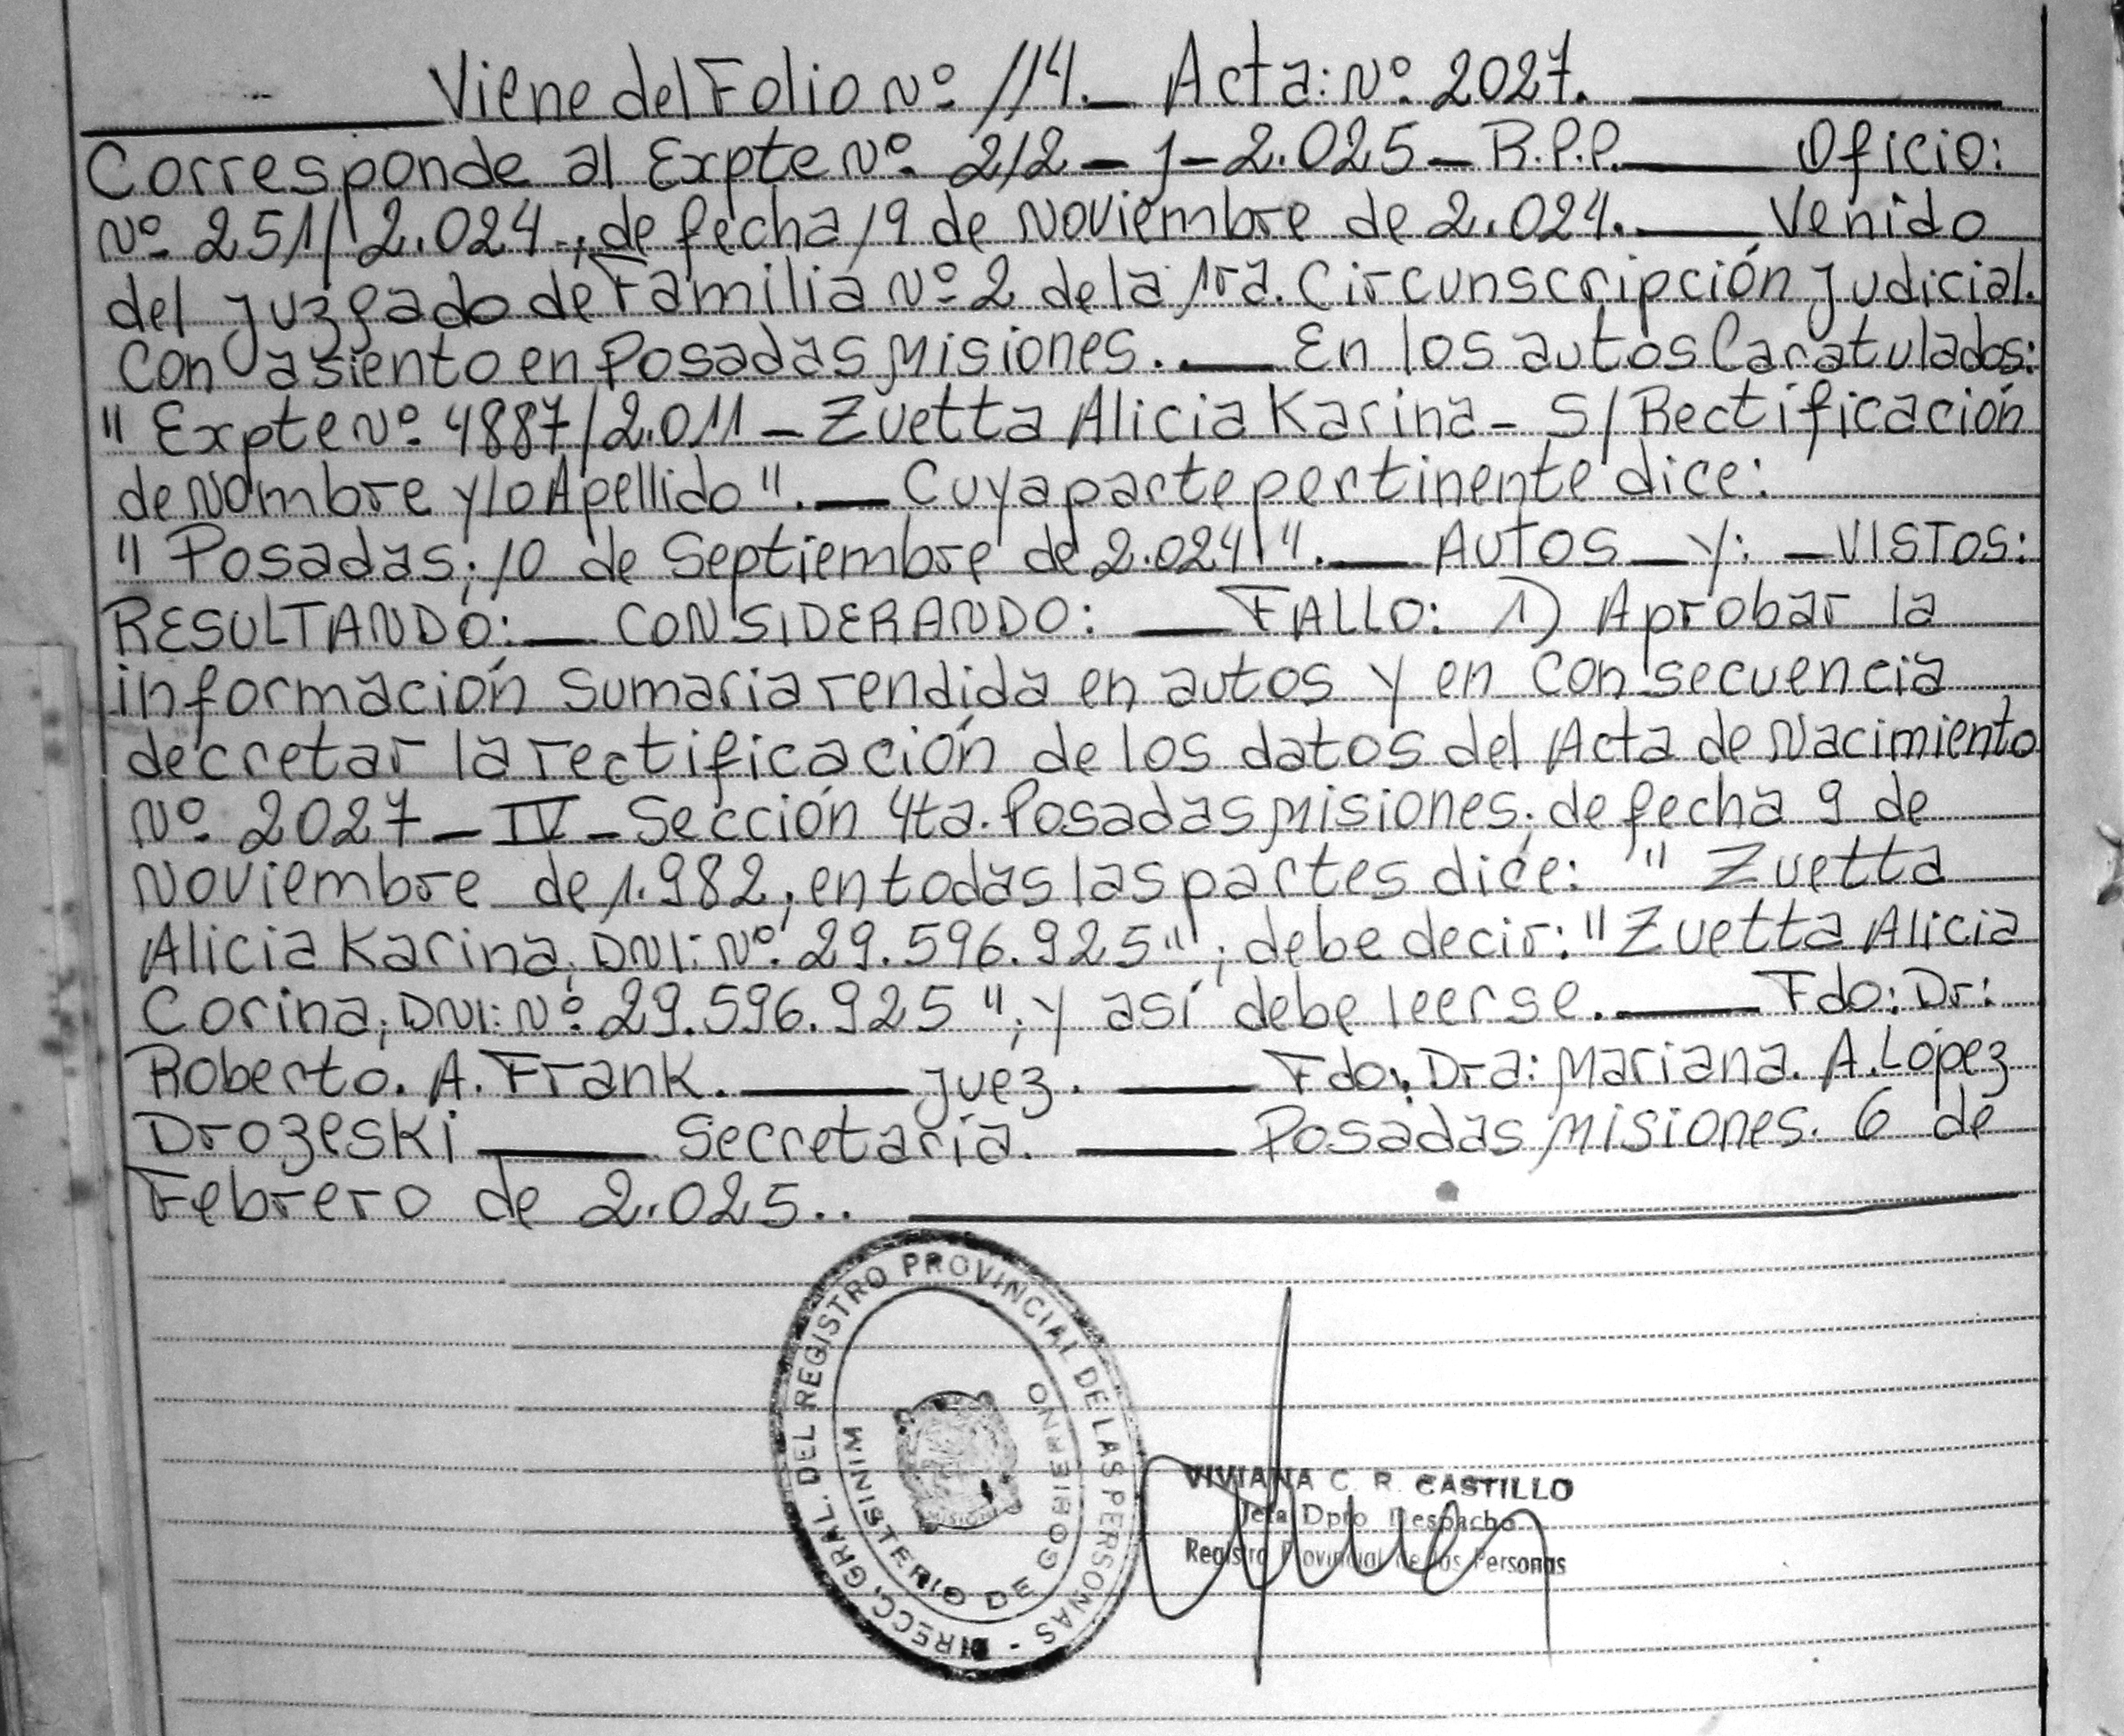 Viene del Folio Nº 114. Acta: Nº 2027.
Corresponde al Expte Nº 212-J-2.025-R.P.P. Oficio:
Nº 251/2.024, de fecha 19 de Noviembre de 2.024. Venido
del Juzgado de Familia Nº 2 de la 1ra. Circunscripción Judicial.
Con asiento en Posadas Misiones. En los autos Caratulados:
" Expte Nº 4887/2.011 - Zuetta Alicia Karina - S/Rectificación
de Nombre y/o Apellido". Cuya parte pertinente dice:
" Posadas; 10 de Septiembre de 2.024". AUTOS Y: - VISTOS:
RESULTANDO: CONSIDERANDO: FALLO: 1) Aprobar la
información sumaria rendida en autos y en consecuencia
decretar la rectificación de los datos del Acta de Nacimiento
Nº 2027 - IV - Sección 4ta. Posadas Misiones; de fecha 9 de
Noviembre de 1.982; en todas las partes dice: " Zuetta
Alicia Karina; DNI: Nº 29.596.925"; debe decir: "Zuetta Alicia
Corina; DNI: Nº 29.596.925"; y así debe leerse. Fdo: Dr:
Roberto. A. Frank. Juez. Fdo: Dra: Mariana. A. López
Drozeski Secretaría. Posadas Misiones. 6 de
Febrero de 2.025..
DIRECC. GRAL. DEL REGISTRO PROVINCIAL DE LAS PERSONAS -
MINISTERIO DE GOBIERNO
MISIONES
VIVIANA C. R. CASTILLO
Jefa Dpto Despacho
Registro Provincial de las Personas